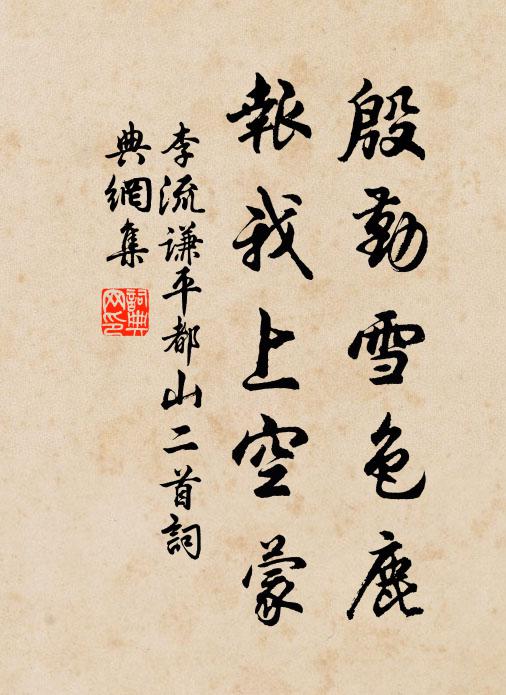 殷勤雪色鹿
報我上空蒙
李流謙平都山二首詞
典網集
詞典網印